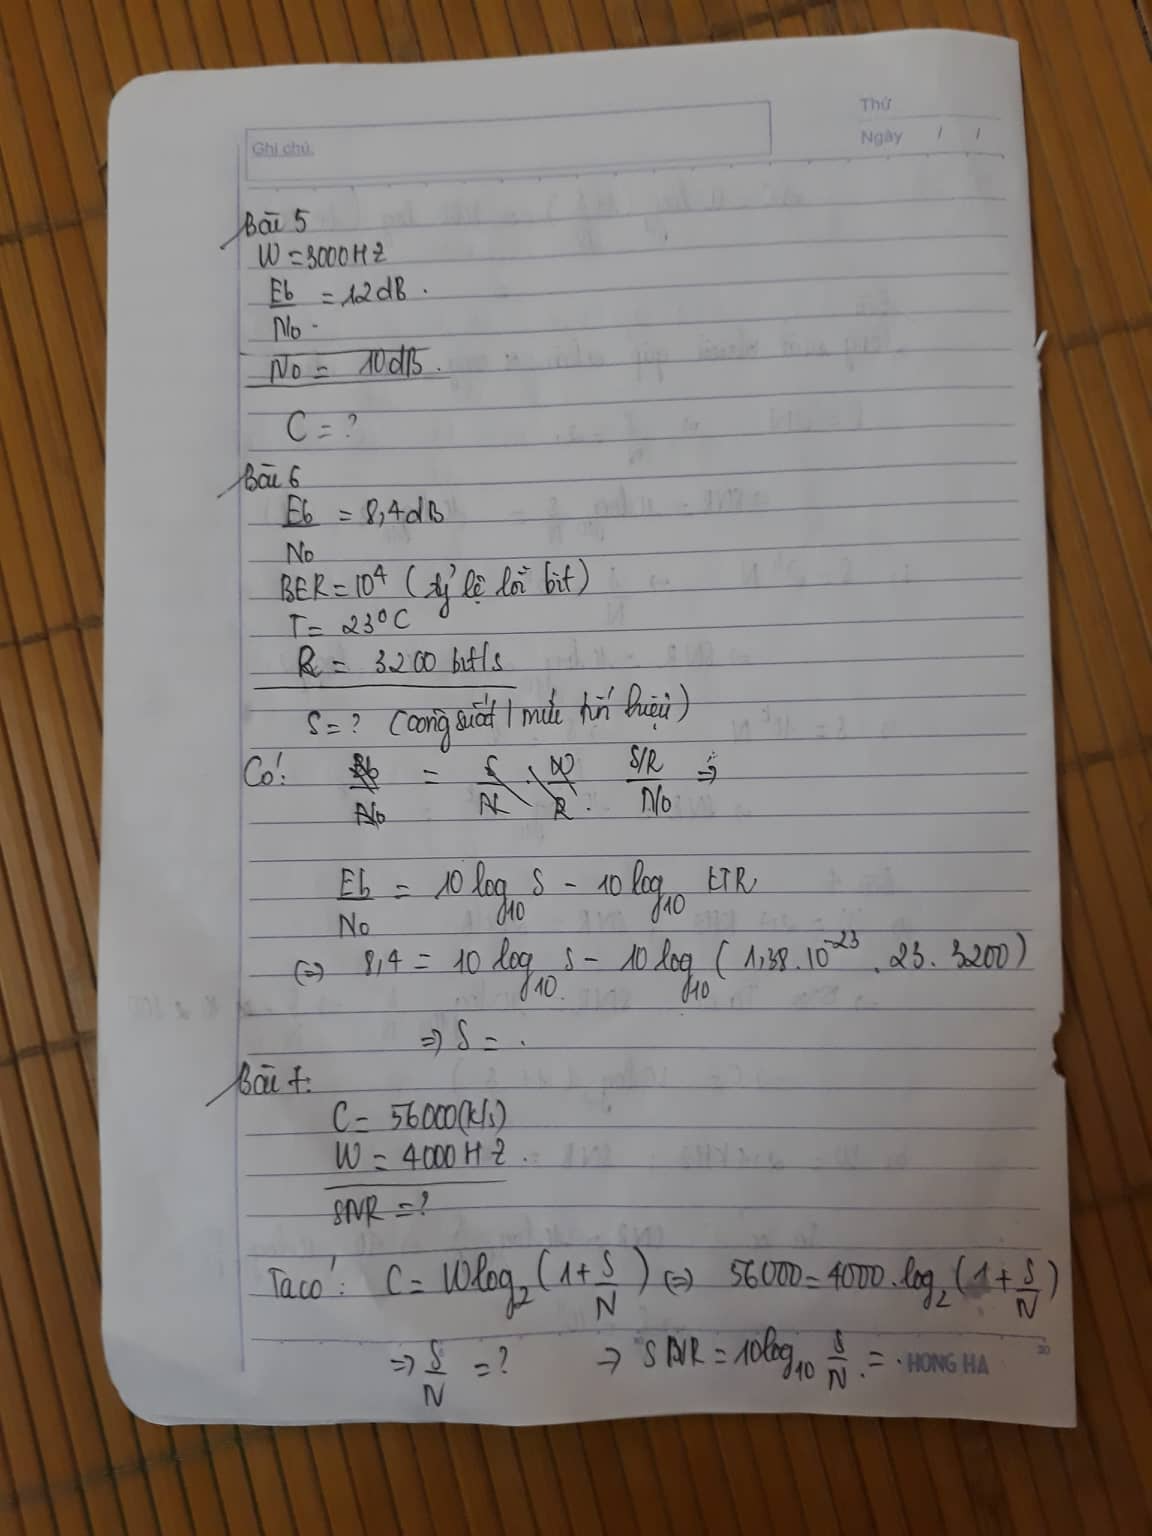 Thứ
Ghi chú:
Ngày / /
Bài 5
W = 3000Hz
Eb/No = 12dB.
No = 10dB.
C = ?
Bài 6
Eb/No = 8,4dB
BER = 10^4 (tỷ lệ lỗi bit)
T = 23°C
R = 3200 bit/s
S = ? (công suất / mức tín hiệu)
Có: Eb/No = S/N . W/R. (S/R)/No ⇒
Eb/No = 10 log10 S - 10 log10 kTR
(⇒) 8,4 = 10 log10 S - 10 log10 (1,38.10^-23 . 23. 3200)
⇒ S = .
Bài 7:
C = 56000(k/s)
W = 4000Hz.
SNR = ?
Ta có: C = W log2 (1 + S/N) (⇒) 56000 = 4000. log2 (1 + S/N)
⇒ S/N = ? → SNR = 10 log10 S/N. = .
20
HONG HA